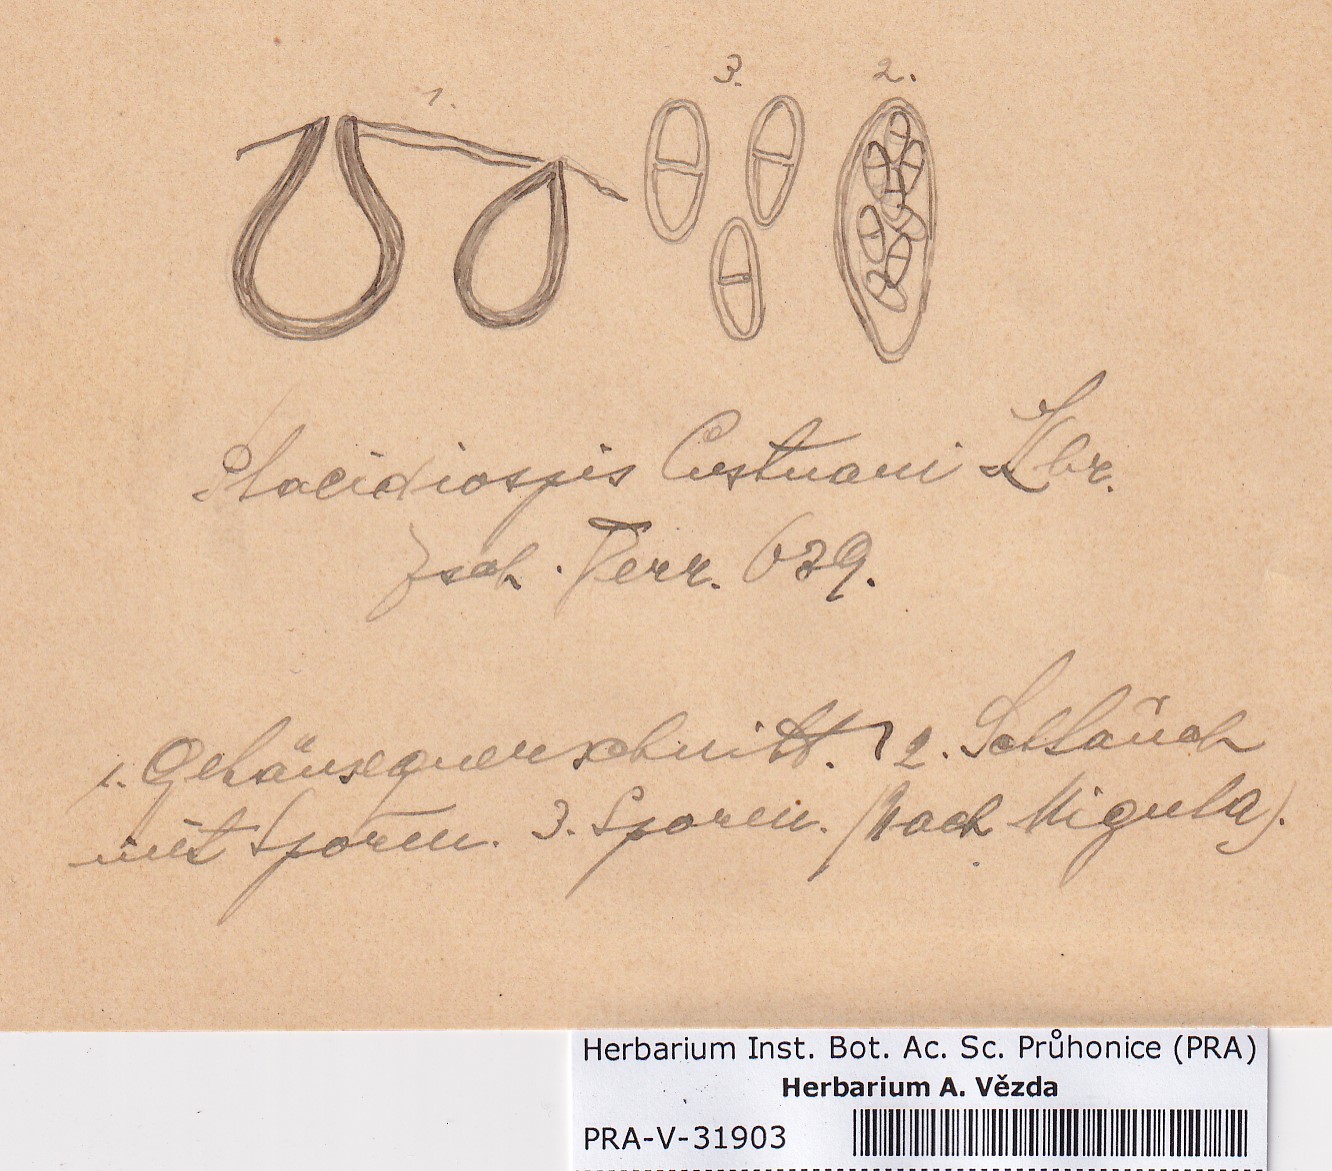 1. 3. 2.
Placidiospis Custnani Lbr.
Zsch. Verr. 639.
1. Gehäusequerschnitt. 2. Schlauch
mit Sporen. 3. Sporen. (Nach Migula).
Herbarium Inst. Bot. Ac. Sc. Průhonice (PRA)
Herbarium A. Vězda
PRA-V-31903